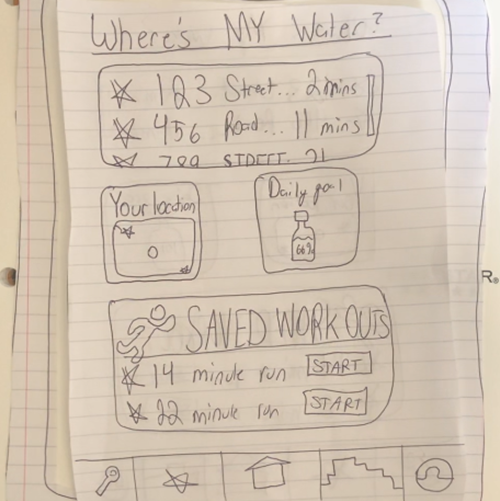 Where's MY Water?
123 Street... 2 mins
456 Road... 11 mins
789 STREET. 21
Your location
Daily goal
66%
SAVED WORKOUTS
14 minute run START
22 minute run START
R.